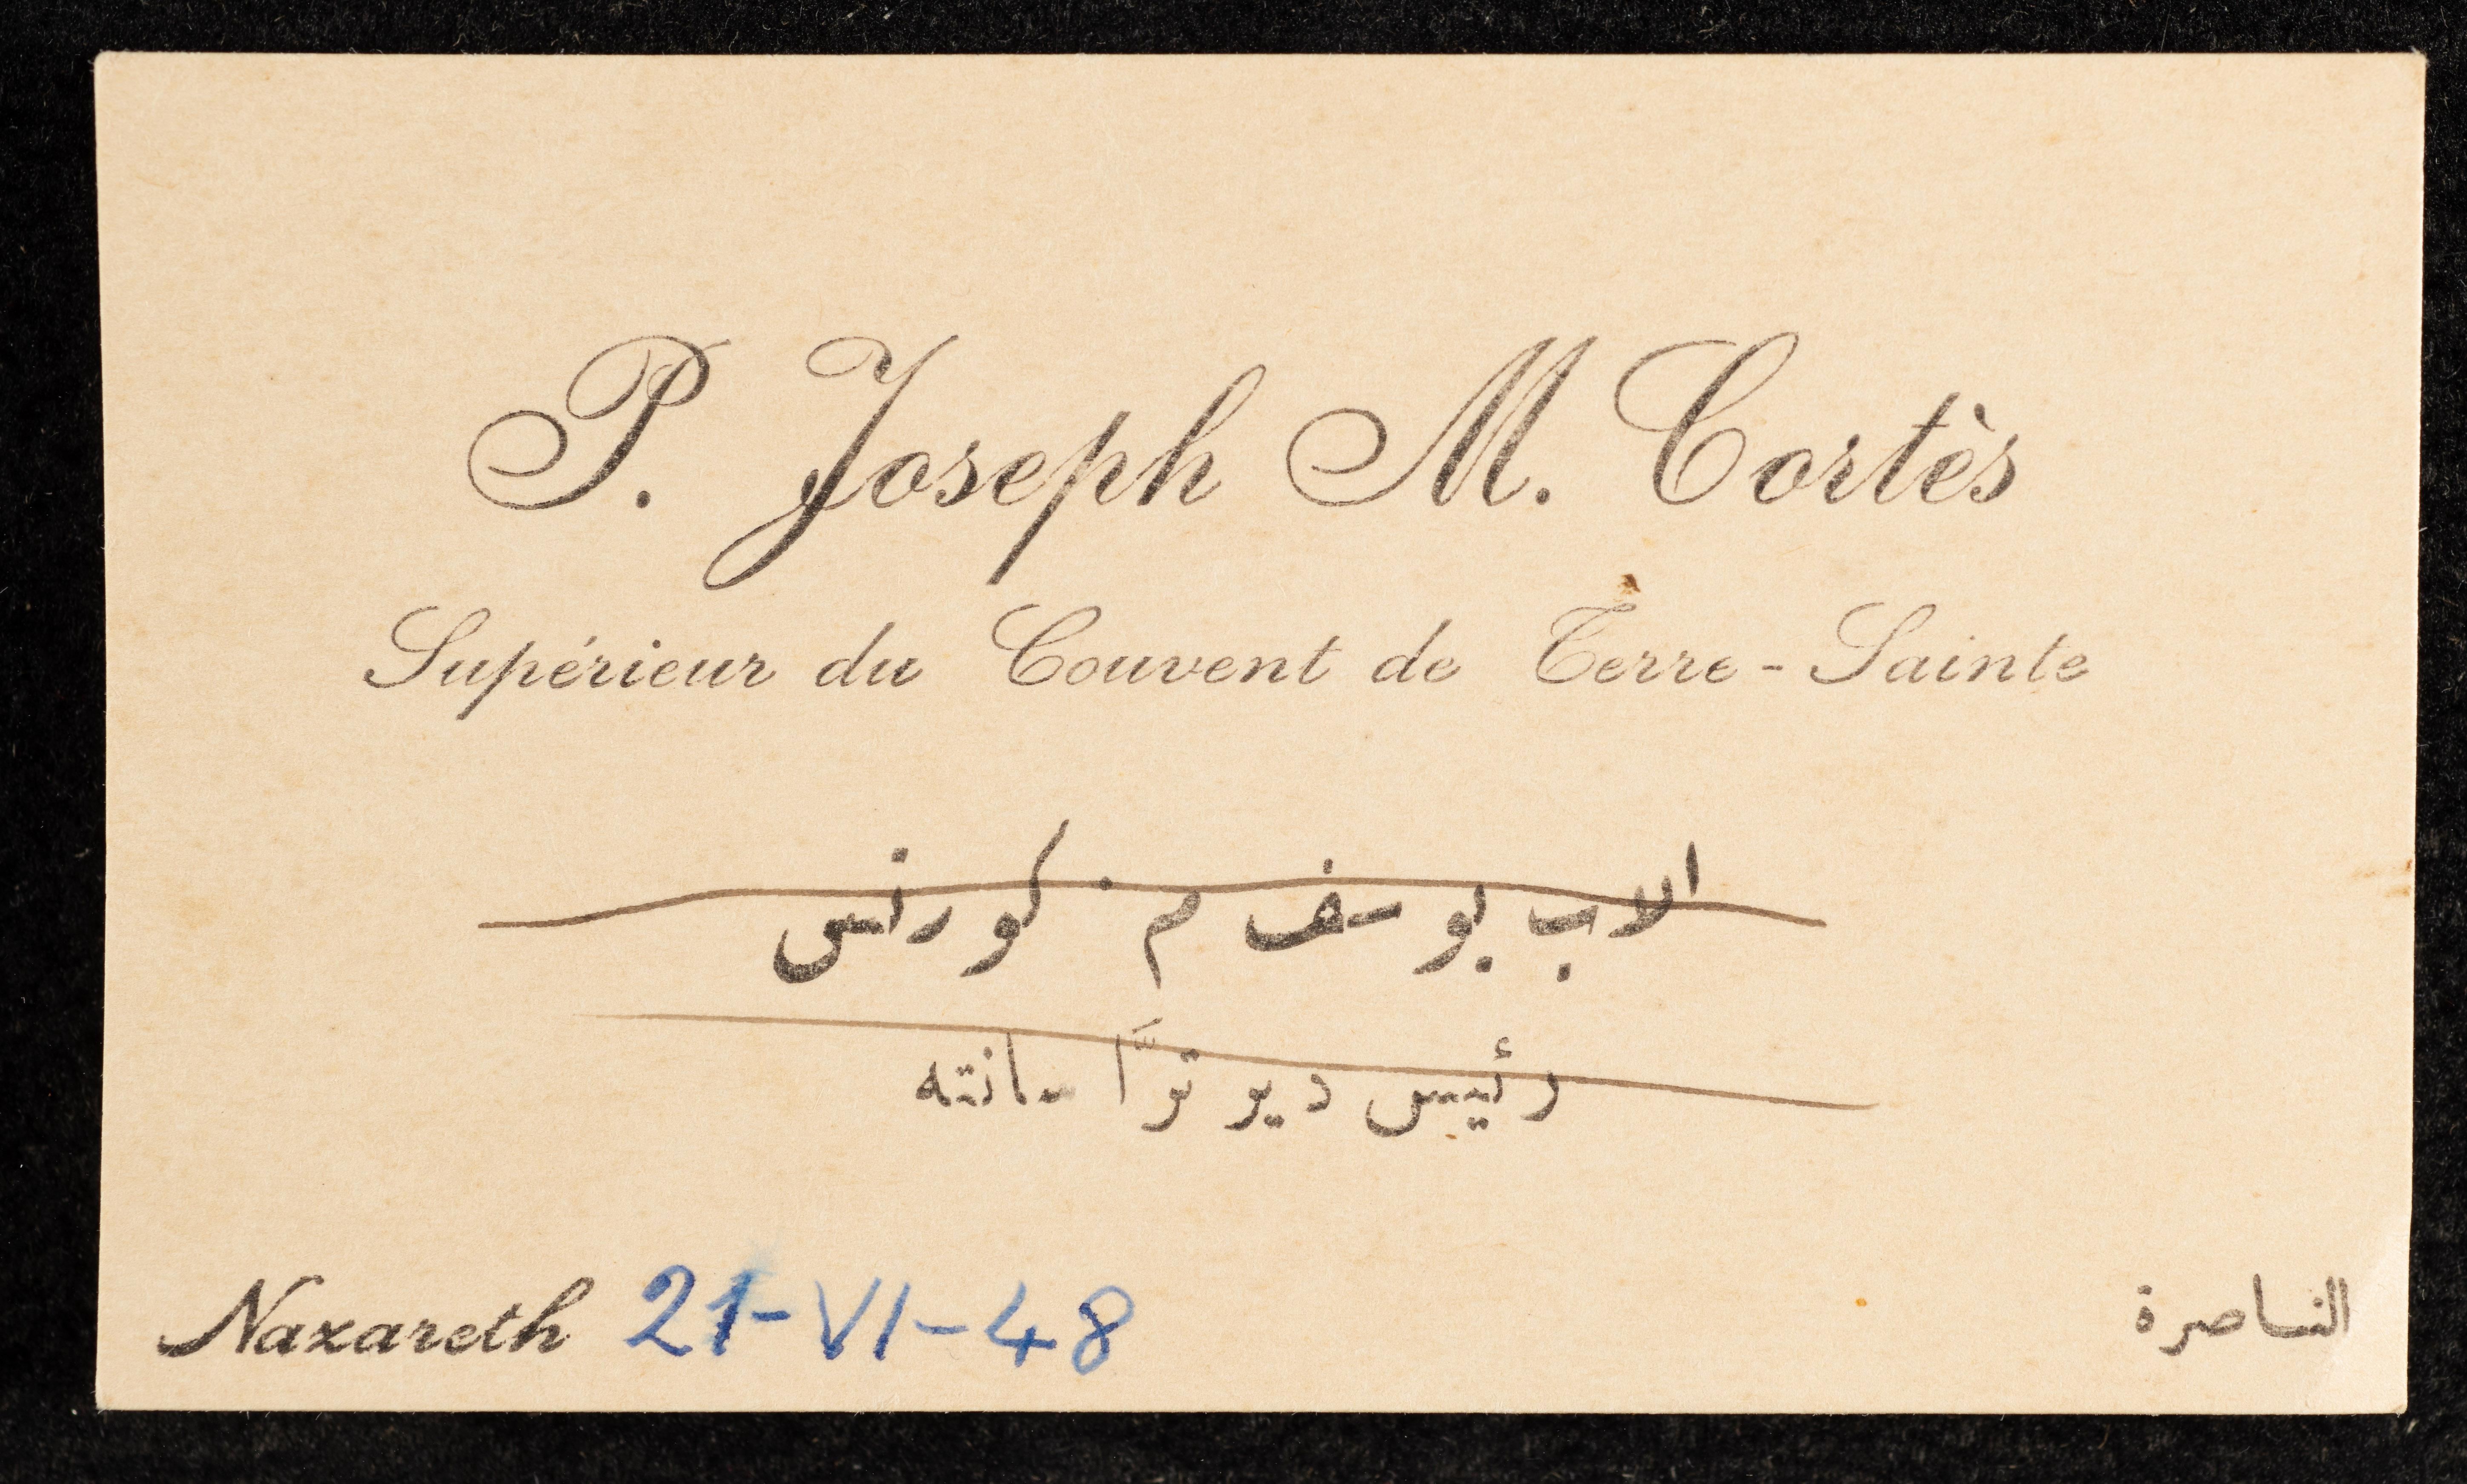 P. Joseph M. Cortès
Supérieur du Couvent de Terre-Sainte
الاب يوسف م. كورتس
رئيس دير ترَّا سانته
Nazareth 21-VI-48
الناصرة